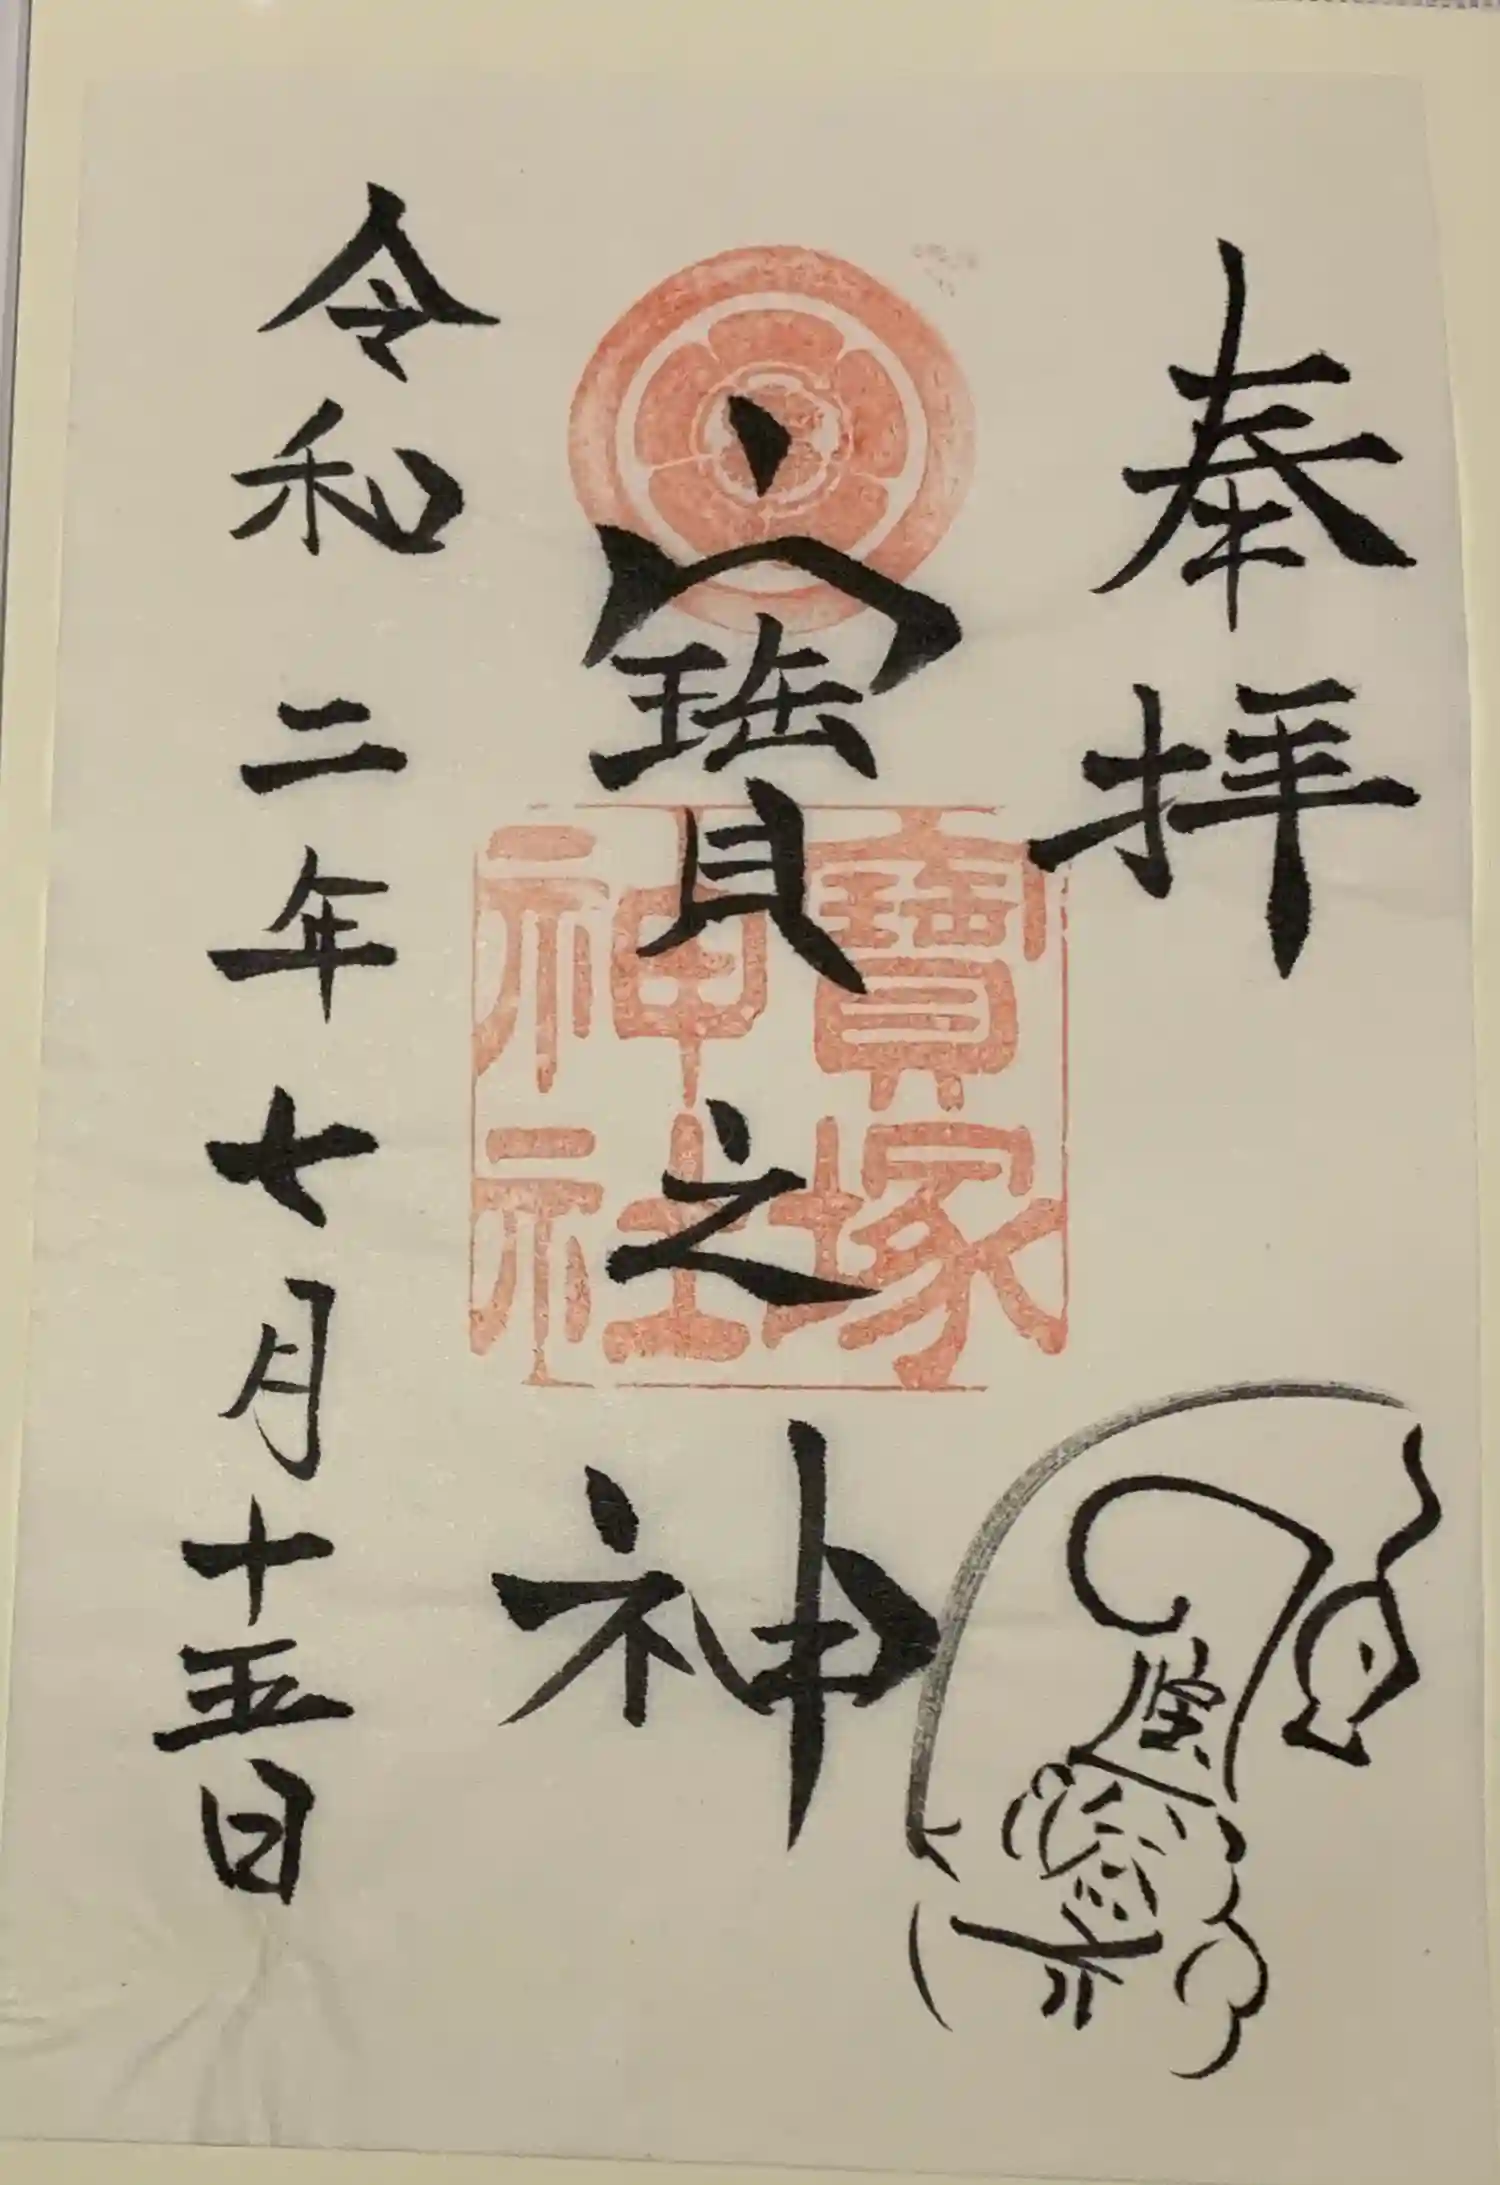 奉拝
寶之神
寶塚
神社
令和二年七月十五日